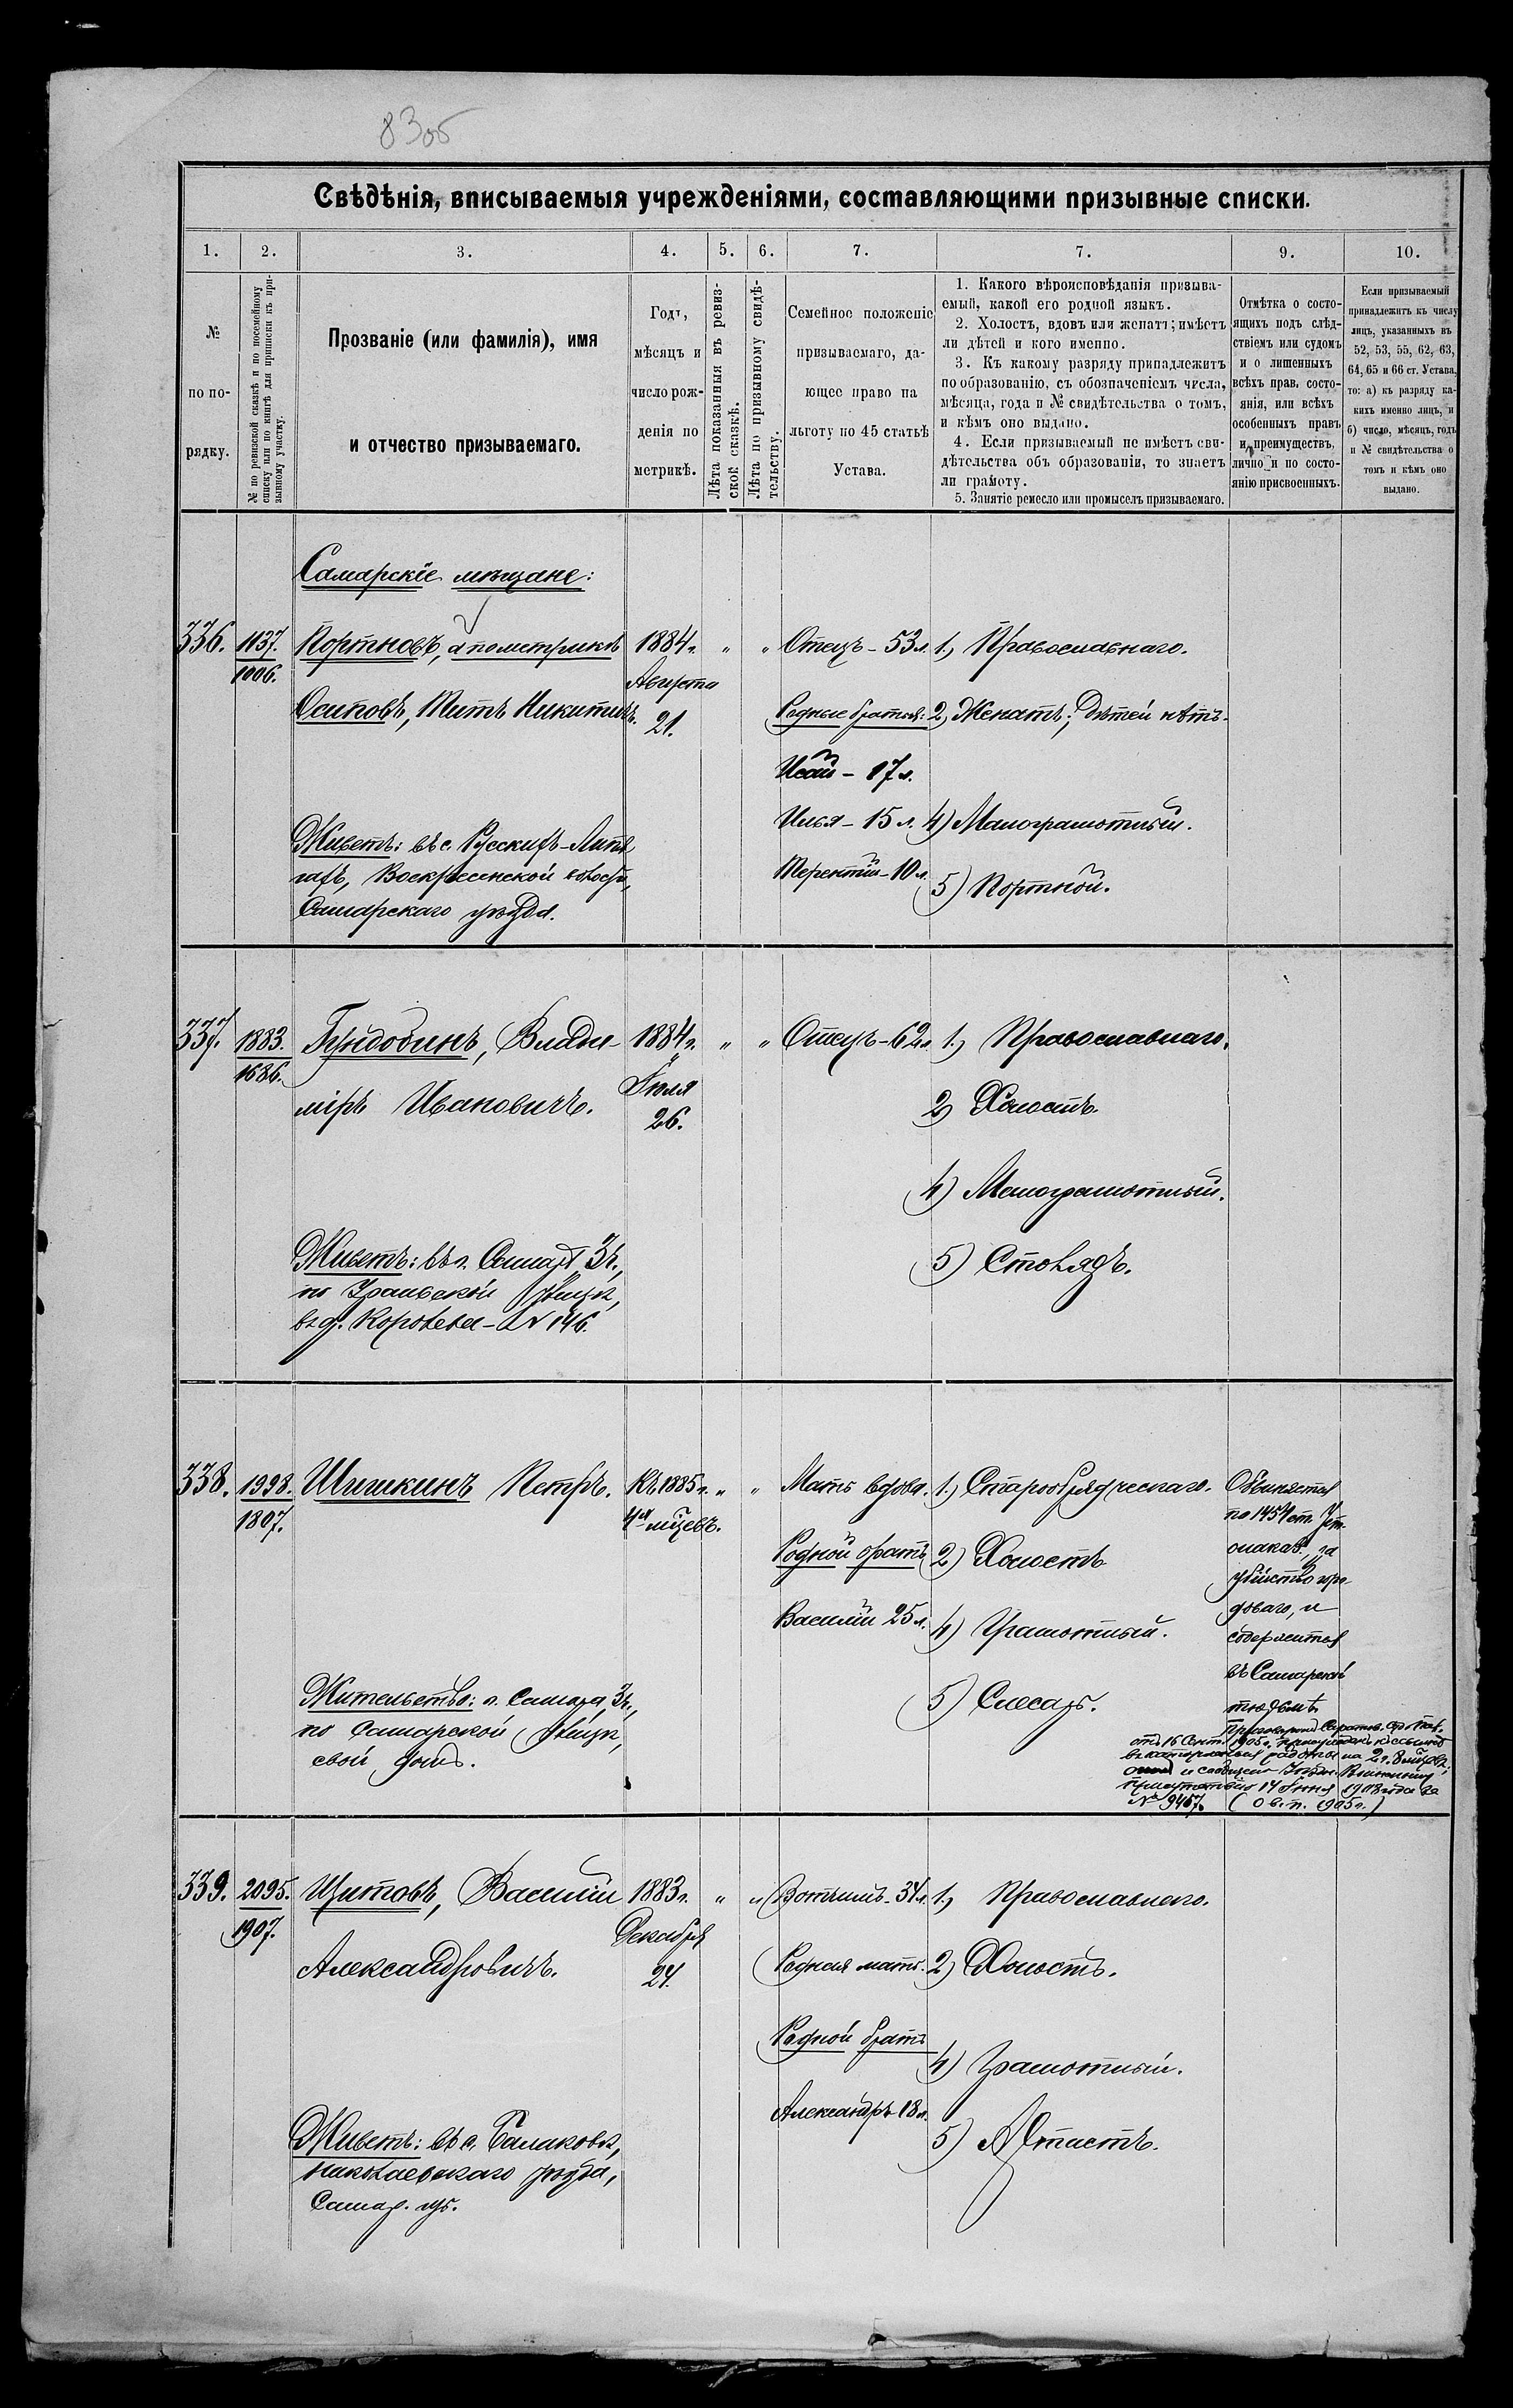 83об
Свѣдѣнія, вписываемыя учрежденіями, составляющими призывные списки.
1.
2.
3.
4.
5.
6.
7.
7.
9.
10.
№
по по-
рядку.
№ по ревизской сказкѣ и по посемейному
списку или по книгѣ для приписки къ при-
зывному участку.
Прозваніе (или фамилія), имя
и отчество призываемаго.
Годъ,
мѣсяцъ и
число рож-
денія по
метрикѣ.
Лѣта показанныя въ ревиз-
ской сказкѣ.
Лѣта по призывному свидѣ-
тельству.
Семейное положеніе
призываемаго, да-
ющее право на
льготу по 45 статьѣ
Устава.
1. Какого вѣроисповѣданія призыва-
емый, какой его родной языкъ.
2. Холостъ, вдовъ или женатъ; имѣетъ
ли дѣтей и кого именно.
3. Къ какому разряду принадлежитъ
по образованію, съ обозначеніемъ числа,
мѣсяца, года и № свидѣтельства о томъ,
и кѣмъ оно выдано.
4. Если призываемый не имѣетъ сви-
дѣтельства объ образованіи, то знаетъ
ли грамоту.
5. Занятіе ремесло или промыселъ призываемаго.
Отмѣтка о состо-
ящихъ подъ слѣд-
ствіемъ или судомъ
и о лишенныхъ
всѣхъ прав, состо-
янія, или всѣхъ
особенныхъ правъ
и преимуществъ,
лично и по состо-
янію присвоенныхъ.
Если призываемый
принадлежитъ къ числу
лицъ, указанныхъ въ
52, 53, 55, 62, 63,
64, 65 и 66 ст. Устава,
то: а) къ разряду ка-
кихъ именно лицъ, и
б) число, мѣсяцъ, годъ
и № свидѣтельства о
томъ и кѣмъ оно
выдано.
Самарскіе мѣщане:
336.
1137.
1006.
Портновъ, а по метрикѣ
Осиповъ, Титъ Никитичъ.
Живетъ: въ с. Русскихъ-Липя
гахъ, Воскресенской волости,
Самарскаго уѣзда.
1884 г.
Августа
21.
" "
Отецъ - 53 л.
Родные братья:
Исай - 17 л.
Илья - 15 л.
Терентій - 10 л.
1.) Православнаго.
2) Женатъ; дѣтей нѣтъ.
4) Малограмотный.
5) Портной.
337.
1883.
1686.
Гундобинъ, Влади-
міръ Ивановичъ.
Живетъ: въ г. Самарѣ 3 ч.,
по Уральской улицѣ,
въ д. Королева - № 146.
1884 г.
Іюля
26.
" "
Отецъ - 62 л.
1.) Православнаго.
2) Холостъ.
4) Малограмотный.
5) Столяръ.
338.
1998.
1807.
Шишкинъ Петръ.
Жительство: г. Самара 3 ч.,
по Самарской улицѣ,
свой домъ.
Къ 1885 г.
4 м мѣцевъ.
" "
Мать вдова.
Родной братъ
Василій 25 л.
1.) Старообрядческаго.
2) Холостъ
4) Грамотный.
5) Слесарь.
Обвиняется
по 1454 ст. Ул.
о наказ., за
убійство горо-
доваго, и
содержится
въ Самарской
тюрьмѣ
Приговоромъ Саратов. Суд. Пал.
отъ 16 Сент. 1905 г. присужденъ къ ссылкѣ
въ каторжныя работы на 2 г. 8 мѣцевъ;
и сообщено Воинскому
присутствію 14 Іюня 1908 года за
№ 9467. (О в. п. 1905 г.)
339.
2095.
1907.
Щитовъ, Василій
Александровичъ.
Живетъ: въ с. Балаковѣ,
Николаевскаго уѣзда,
Самар. губ.
1883 г.
Декабря
24.
" "
Вотчимъ - 34 л.
Родная мать.
Родной братъ
Александръ 18 л.
1.) Православнаго.
2) Холостъ.
4) Грамотный.
5)